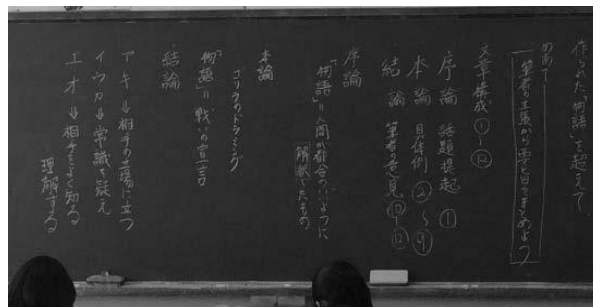 作られた「物語」を超えて
めあて
筆者の主張から要旨をまとめよう
文章構成 ①〜⑫
序論 話題提起 ①
本論 具体例 ②〜⑨
結論 筆者の意見 ⑩〜⑫
序論
「物語」＝人間の都合のいいように
「解釈」したもの
本論
ゴリラのドラミング
「物語」＝戦いの宣言
結論
ア・キ→相手の立場に立つ
イ・ウ・カ→常識を疑え
エ・オ→相手をよく知る
理解する